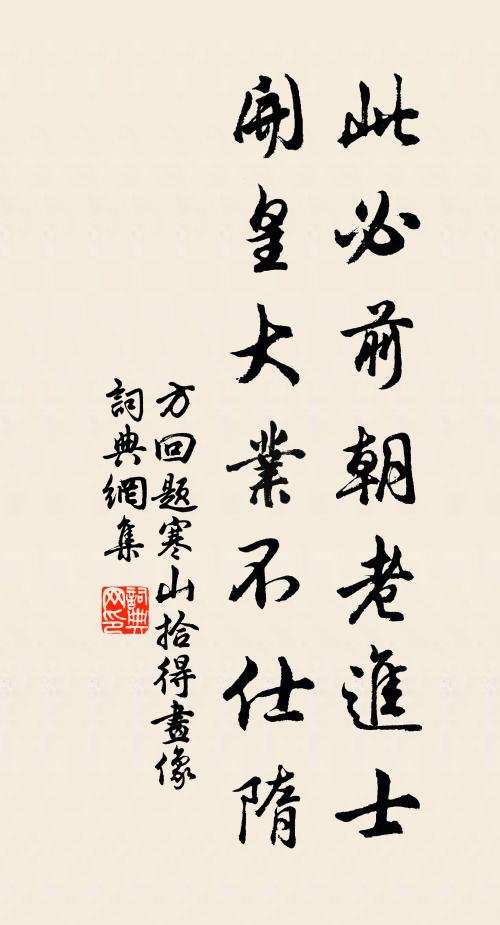 此必前朝老進士
開皇大業不仕隋
方回題寒山拾得畫像
詞典網集
詞典网印